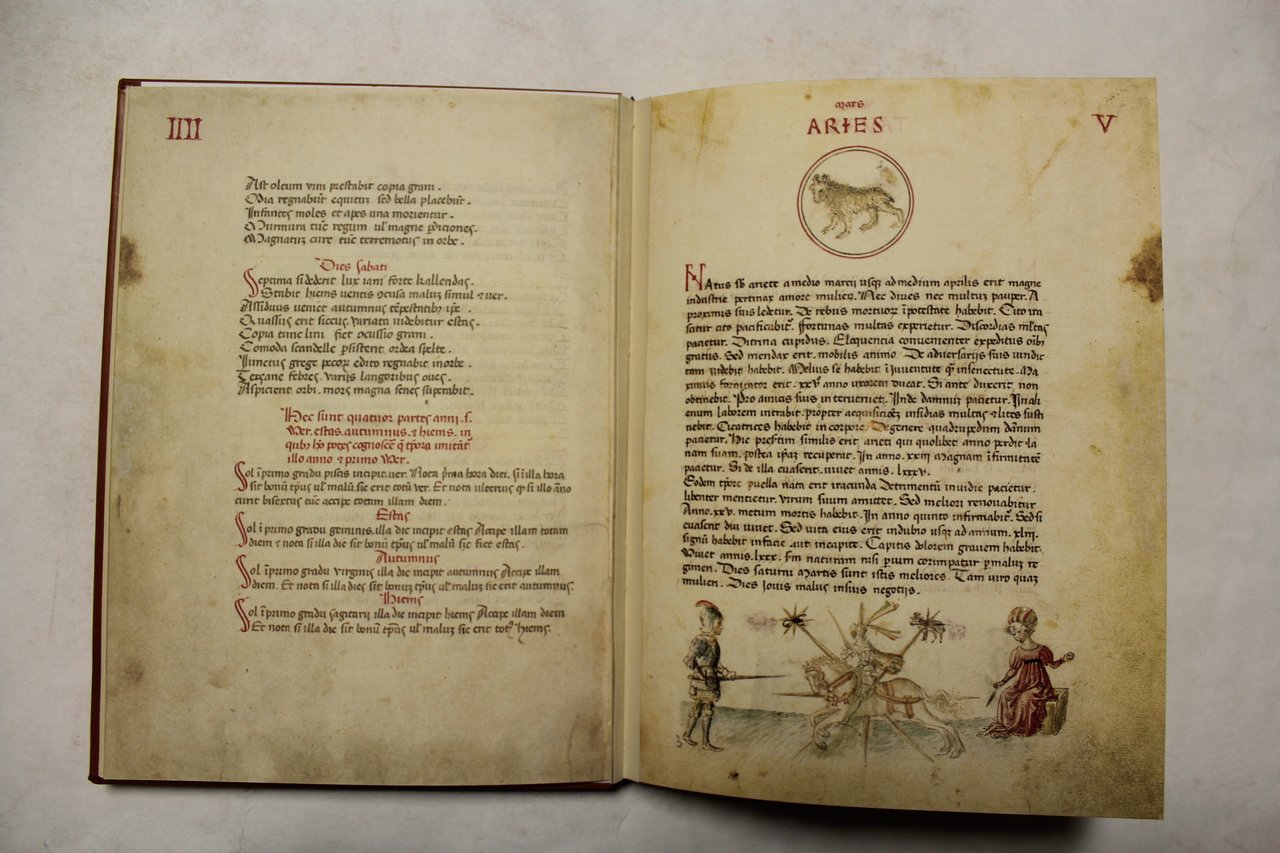 IIII
Ast oleum vini prestabit copia grani.
Odia regnabūt equitū sed bella placebūt.
Infantes moles et apes una morientur.
Murmura tūc regum ul' magne pdiciones.
Magnatū cure tūc terremotus in orbe.
Dies sabati
Septima si dederit lux iani forte kallendas.
Stabit hiems ventis ꝯcusa malus simul et ver.
Assiduus veniet autumnus tēpestatibꝫ ipe.
Quassus erit siccus variata uidebitur estas.
Copia tunc lini fiet occussio grani.
Comoda scandelle psistent ordea spelte.
Iunctus grege pecoꝝ edito regnabit in orbe.
Terçane febres varijs langoribus oues.
Aspicient orbi mors magna senes superabit.
Hec sunt quatuor partes anni .s.
Ver. estas. autumnus. & hiems. in
quibꝫ hō potes cognoscē q̄ tpora imitāt᷑
illo anno & primo Ver.
Sol ī primo gradu piscis incipit ver. Nota pma hora diei. si illa hora
sit bonū tpus ul' malū sic erit totū ver. Et nota ulterius q si illo āno
currit bisextus tūc accipe totam illam diem.
Estas
Sol ī primo gradu geminis. illa die incipit estas Accipe illam totam
diem & nota si illa die sit bonū tpus ul' malū sic fiet estas.
Autumnus
Sol ī primo gradu virginis illa die incipit autumnus Accipe illam
diem. Et nota si illa dies sit bonū tpus ul' malus sic erit autumnus.
Hiems
Sol ī primo gradu sagitarij illa die incipit hiems Accipe illam diem
Et nota si illa die sit bonū tpus ul' malus sic erit totꝫ hiems.
mars
ARIES
V
NAtus sb ariete a medio martij usqꝫ ad medium aprilis erit magne
industrie pertinax amore mulieꝝ. Nec diues nec multū pauper. A
proximis suis ledetur. De rebus mortuoꝝ ī potestate habebit. Cito ira
scitur cito pacificabit᷑. Fortunas multas experietur. Discordias mltas
pacietur. Ditrina cupidus. Eloquencia conuenienter expeditus oībꝫ
gratus. Sed mendax erit. mobilis animo De adversarijs suis uindic
tam videbit habebit. Melius se habebit ī iuventute q̄ in senectute. Ma
ximus fornicator erit. xxv° anno uxorem ducat. Si ante duxerit non
obtinebit. Pro amicis suis interueniet. Inde damnū pacietur. In ali
enum laborem intrabit. propter acquisicioēz insidias multas & lites susti
nebit. Cicatrices habebit in corpore. De genere quadrupedum dānum
pacietur. Hic prestim similis erit arieti qui quolibet anno perdit la
nam suam. postea ipaꝫ recuperit. In anno. xxiij magnam īfirmitatē
paciatur. Si de illa euaserit. uiuet annis. lxxxv.
Eodem tpore puella nata erit iracunda Detrimentū inuidie pacietur.
libenter mencietur. virum suum amittet. Sed meliori renouabitur
Anno. xxv. metum mortis habebit. In anno quinto infirmabit᷑. Sed si
euaserit diu uiuet. Sed vita eius erit in dubio usqꝫ ad annum. xliij.
signū habebit in facie aut in capite. Capitis dolorem grauem habebit
Viuet annis. lxxx. Fm naturam nisi prium corrumpatur p malum re
gimen. Dies saturni Martis sunt istis meliores. Tam uiro quaꝫ
mulieri. Dies iouis malus in suis negotijs.